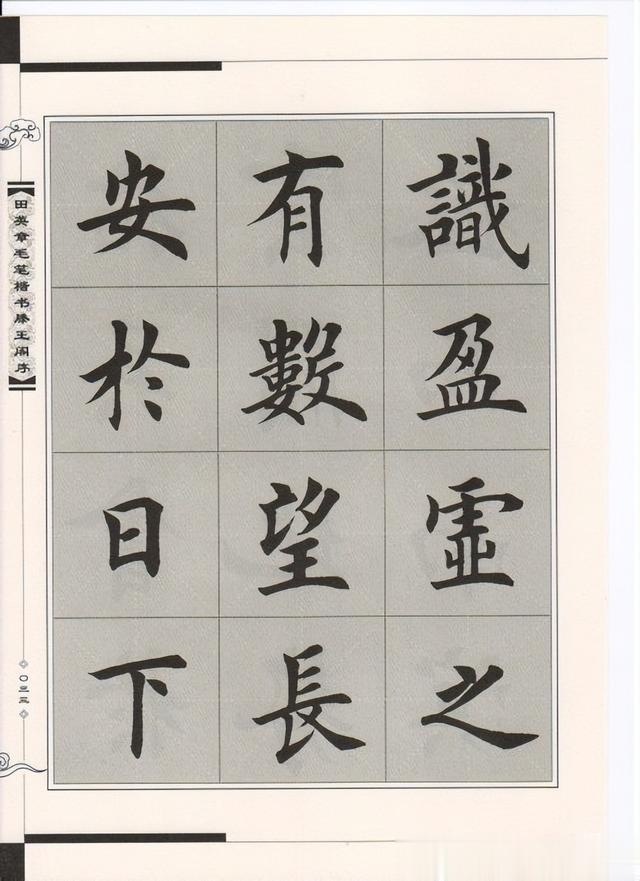 識盈虛之
有數望長
安於日下
田英章毛笔楷书滕王阁序
〇三三